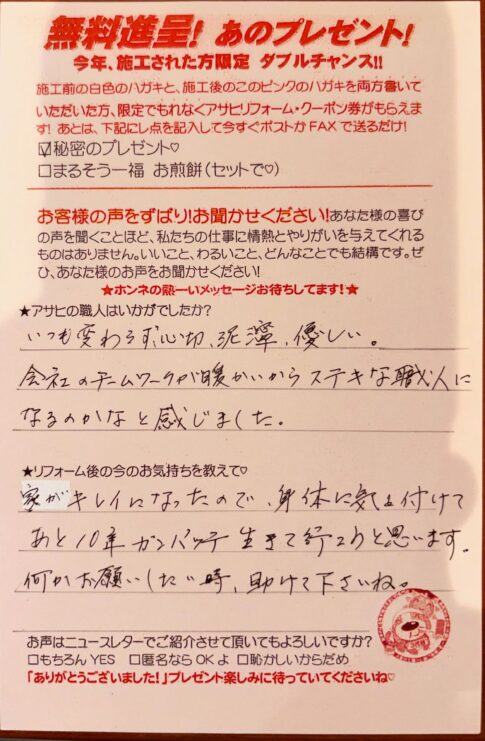 無料進呈! あのプレゼント!
今年、施工された方限定 ダブルチャンス!!
施工前の白色のハガキと、施工後のこのピンクのハガキを両方書いて
いただいた方、限定でもれなくアサヒリフォーム・クーポン券がもらえま
す! あとは、下記にレ点を記入して今すぐポストかFAXで送るだけ!
☑秘密のプレゼント♡
□まるそう一福 お煎餅(セットで♡)
お客様の声をずばり!お聞かせください!あなた様の喜び
の声を聞くことほど、私たちの仕事に情熱とやりがいを与えてくれる
ものはありません。いいこと、わるいこと、どんなことでも結構です。ぜ
ひ、あなた様のお声をお聞かせください!
★ホンネの熱ーいメッセージお待ちしてます!★
★アサヒの職人はいかがでしたか?
いつも変わらず心切、泥濘、優しい。
会社のチームワークが暖かいからステキな職人に
なるのかなと感じました。
★リフォーム後の今のお気持ちを教えて♡
家がキレイになったので、身体に気を付けて
あと10年ガンバッテ生きて行こうと思います。
何かお願いしたい時、助けて下さいね。
お声はニュースレターでご紹介させて頂いてもよろしいですか?
□もちろんYES □匿名ならOKよ □恥かしいからだめ
「ありがとうございました!」プレゼント楽しみに待っていてくださいね♡